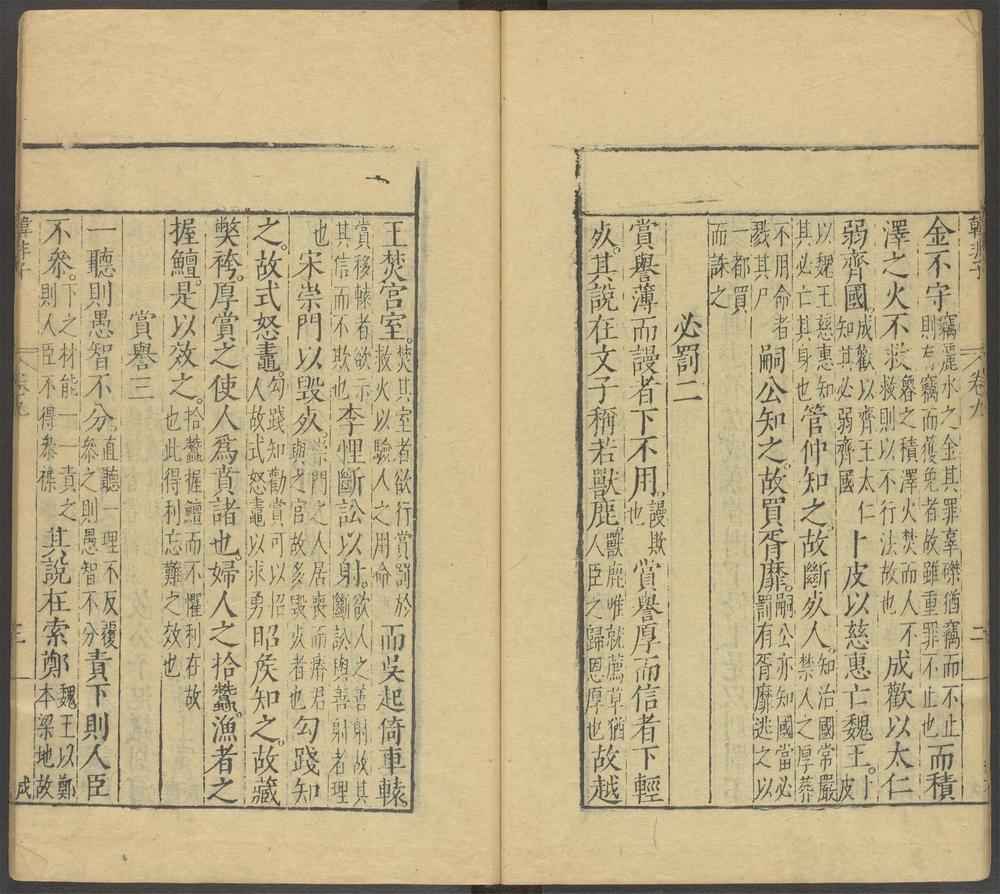 韓非子 卷九 二
金不守竊麗水之金其罪辜磔猶竊而不止則有竊而獲免者故雖重罪不止也而積
澤之火不救魯之積澤火焚而人不救救則以不行法故也成歡以太仁
弱齊國成歡以齊王太仁知其必弱齊國卜皮以慈惠亡魏王卜皮
以魏王慈惠知其必亡其身也管仲知之故斷死人知治國常嚴禁人之厚葬
不用命者戮其尸嗣公知之故買胥靡嗣公亦知國當必罰有胥靡逃之以
一都買而誅之
必罰二
賞譽薄而謾者下不用謾欺也賞譽厚而信者下輕
死其說在文子稱若獸鹿獸鹿唯就薦草猶人臣之歸恩厚也故越
王焚宮室焚其室者欲行賞罰於救火以驗人之用命而吳起倚車轅
賞移轅者欲示其信而不欺也李悝斷訟以射欲人之善射故其斷訟與善射者理
也宋崇門以毀死崇門之人居喪而瘠君與之官故多毀死者也勾踐知
之故式怒鼃勾踐知勸賞可以招人故式怒鼃以求勇昭侯知之故藏
獘袴厚賞之使人為賁諸也婦人之拾蠶漁者之
握鱣是以效之拾蠶握鱣而不懼利在故也此得利忘難之效也
賞譽三
一聽則愚智不分直聽一理不反覆參之則愚智不分責下則人臣
不參下之材能一一責之則人臣不得參襍其說在索鄭魏王以鄭本梁地故
韓非子 卷九 三 成